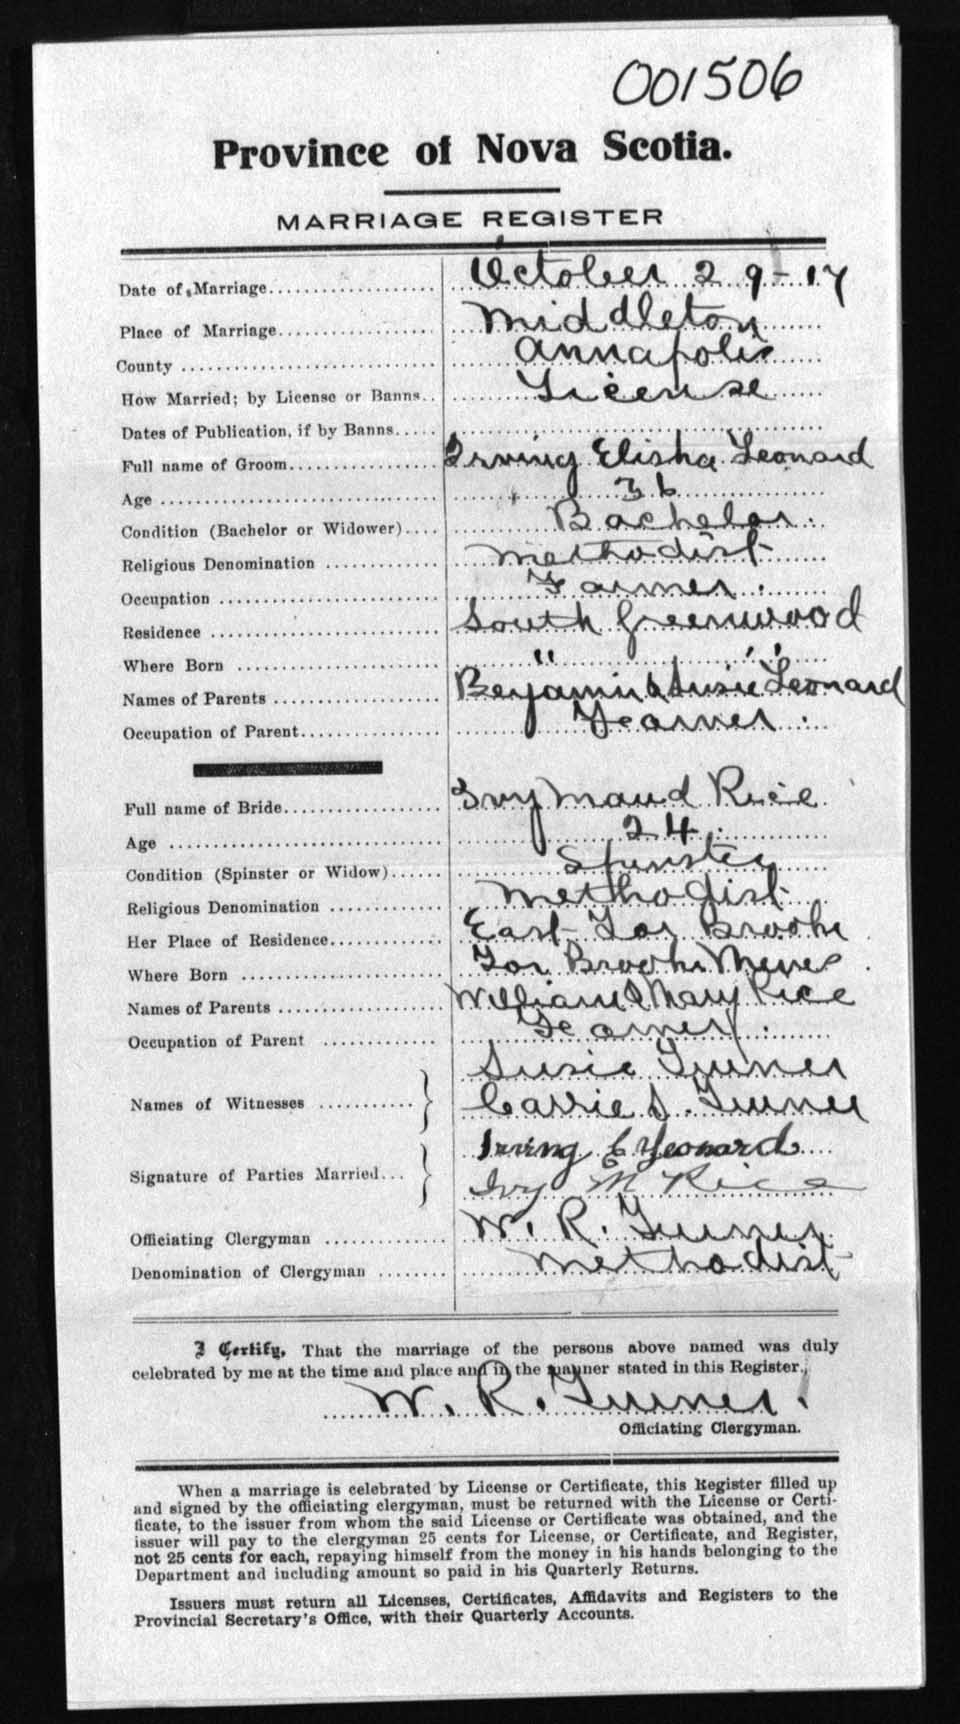 001506
Province of Nova Scotia.
MARRIAGE REGISTER
Date of Marriage.................... October 29-17
Place of Marriage................... Middleton
County ............................ Annapolis
How Married; by License or Banns.. License
Dates of Publication, if by Banns.....
Full name of Groom................ Irving Elisha Leonard
Age .............................. 36
Condition (Bachelor or Widower).... Bachelor.
Religious Denomination ............ Methodist
Occupation ........................ Farmer.
Residence ......................... South Greenwood
Where Born ...................... " "
Names of Parents .................. Benjamin & Susie Leonard
Occupation of Parent............... Farmer.
Full name of Bride.................. Ivy Maud Rice
Age ............................... 24.
Condition (Spinster or Widow)...... Spinster
Religious Denomination ............ Methodist
Her Place of Residence............. East Tor Brook
Where Born ...................... Tor Brook Mines
Names of Parents .................. William & Mary Rice
Occupation of Parent ............. Farmer.
Names of Witnesses ........... } Susie Turner
Carrie S. Turner
Signature of Parties Married... } Irving E Leonard
Ivy M Rice
Officiating Clergyman ............. W. R. Turner
Denomination of Clergyman ........ Methodist
I Certify, That the marriage of the persons above named was duly
celebrated by me at the time and place and in the manner stated in this Register.
W. R. Turner.
Officiating Clergyman.
When a marriage is celebrated by License or Certificate, this Register filled up
and signed by the officiating clergyman, must be returned with the License or Certi-
ficate, to the issuer from whom the said License or Certificate was obtained, and the
issuer will pay to the clergyman 25 cents for License, or Certificate, and Register,
not 25 cents for each, repaying himself from the money in his hands belonging to the
Department and including amount so paid in his Quarterly Returns.
Issuers must return all Licenses, Certificates, Affidavits and Registers to the
Provincial Secretary's Office, with their Quarterly Accounts.